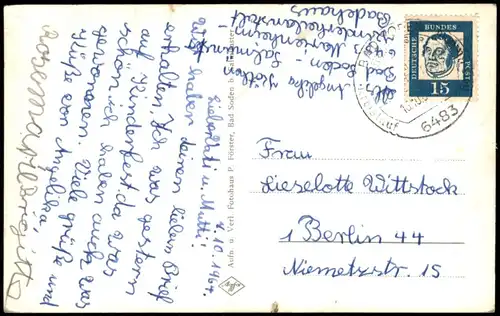 Abs. Angelika
Bad Soden-
Salmünster
Kinderheilanstalt
Badehaus
7.10.1964.
Lieber Vati u. Mutti!
haben deinen lieben Brief
erhalten. Ich war gestern
auf Kinderfest da war
schön ich haben auch was
gewonnen. Viele grüße und
Küße von Angelika,
Aufn. u. Verl. Fotohaus P. Förster, Bad Soden b. Salmünster
Agfa
DEUTSCHE BUNDESPOST
15
6483
Frau
Lieselotte Wittstock
1 Berlin 44
Niemetzstr. 15